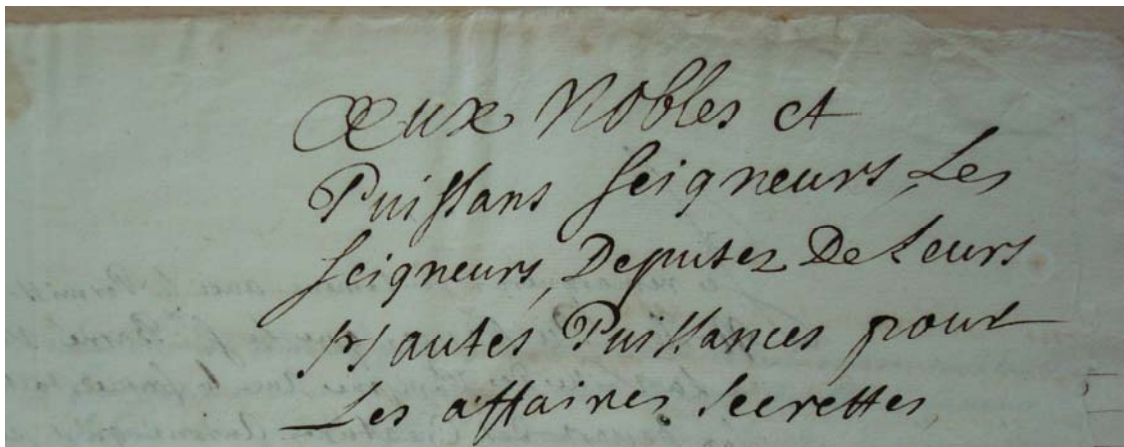 Aux Nobles et
Puissans Seigneurs, Les
Seigneurs, Deputez De Leurs
Hautes Puissances pour
Les affaires Secrettes